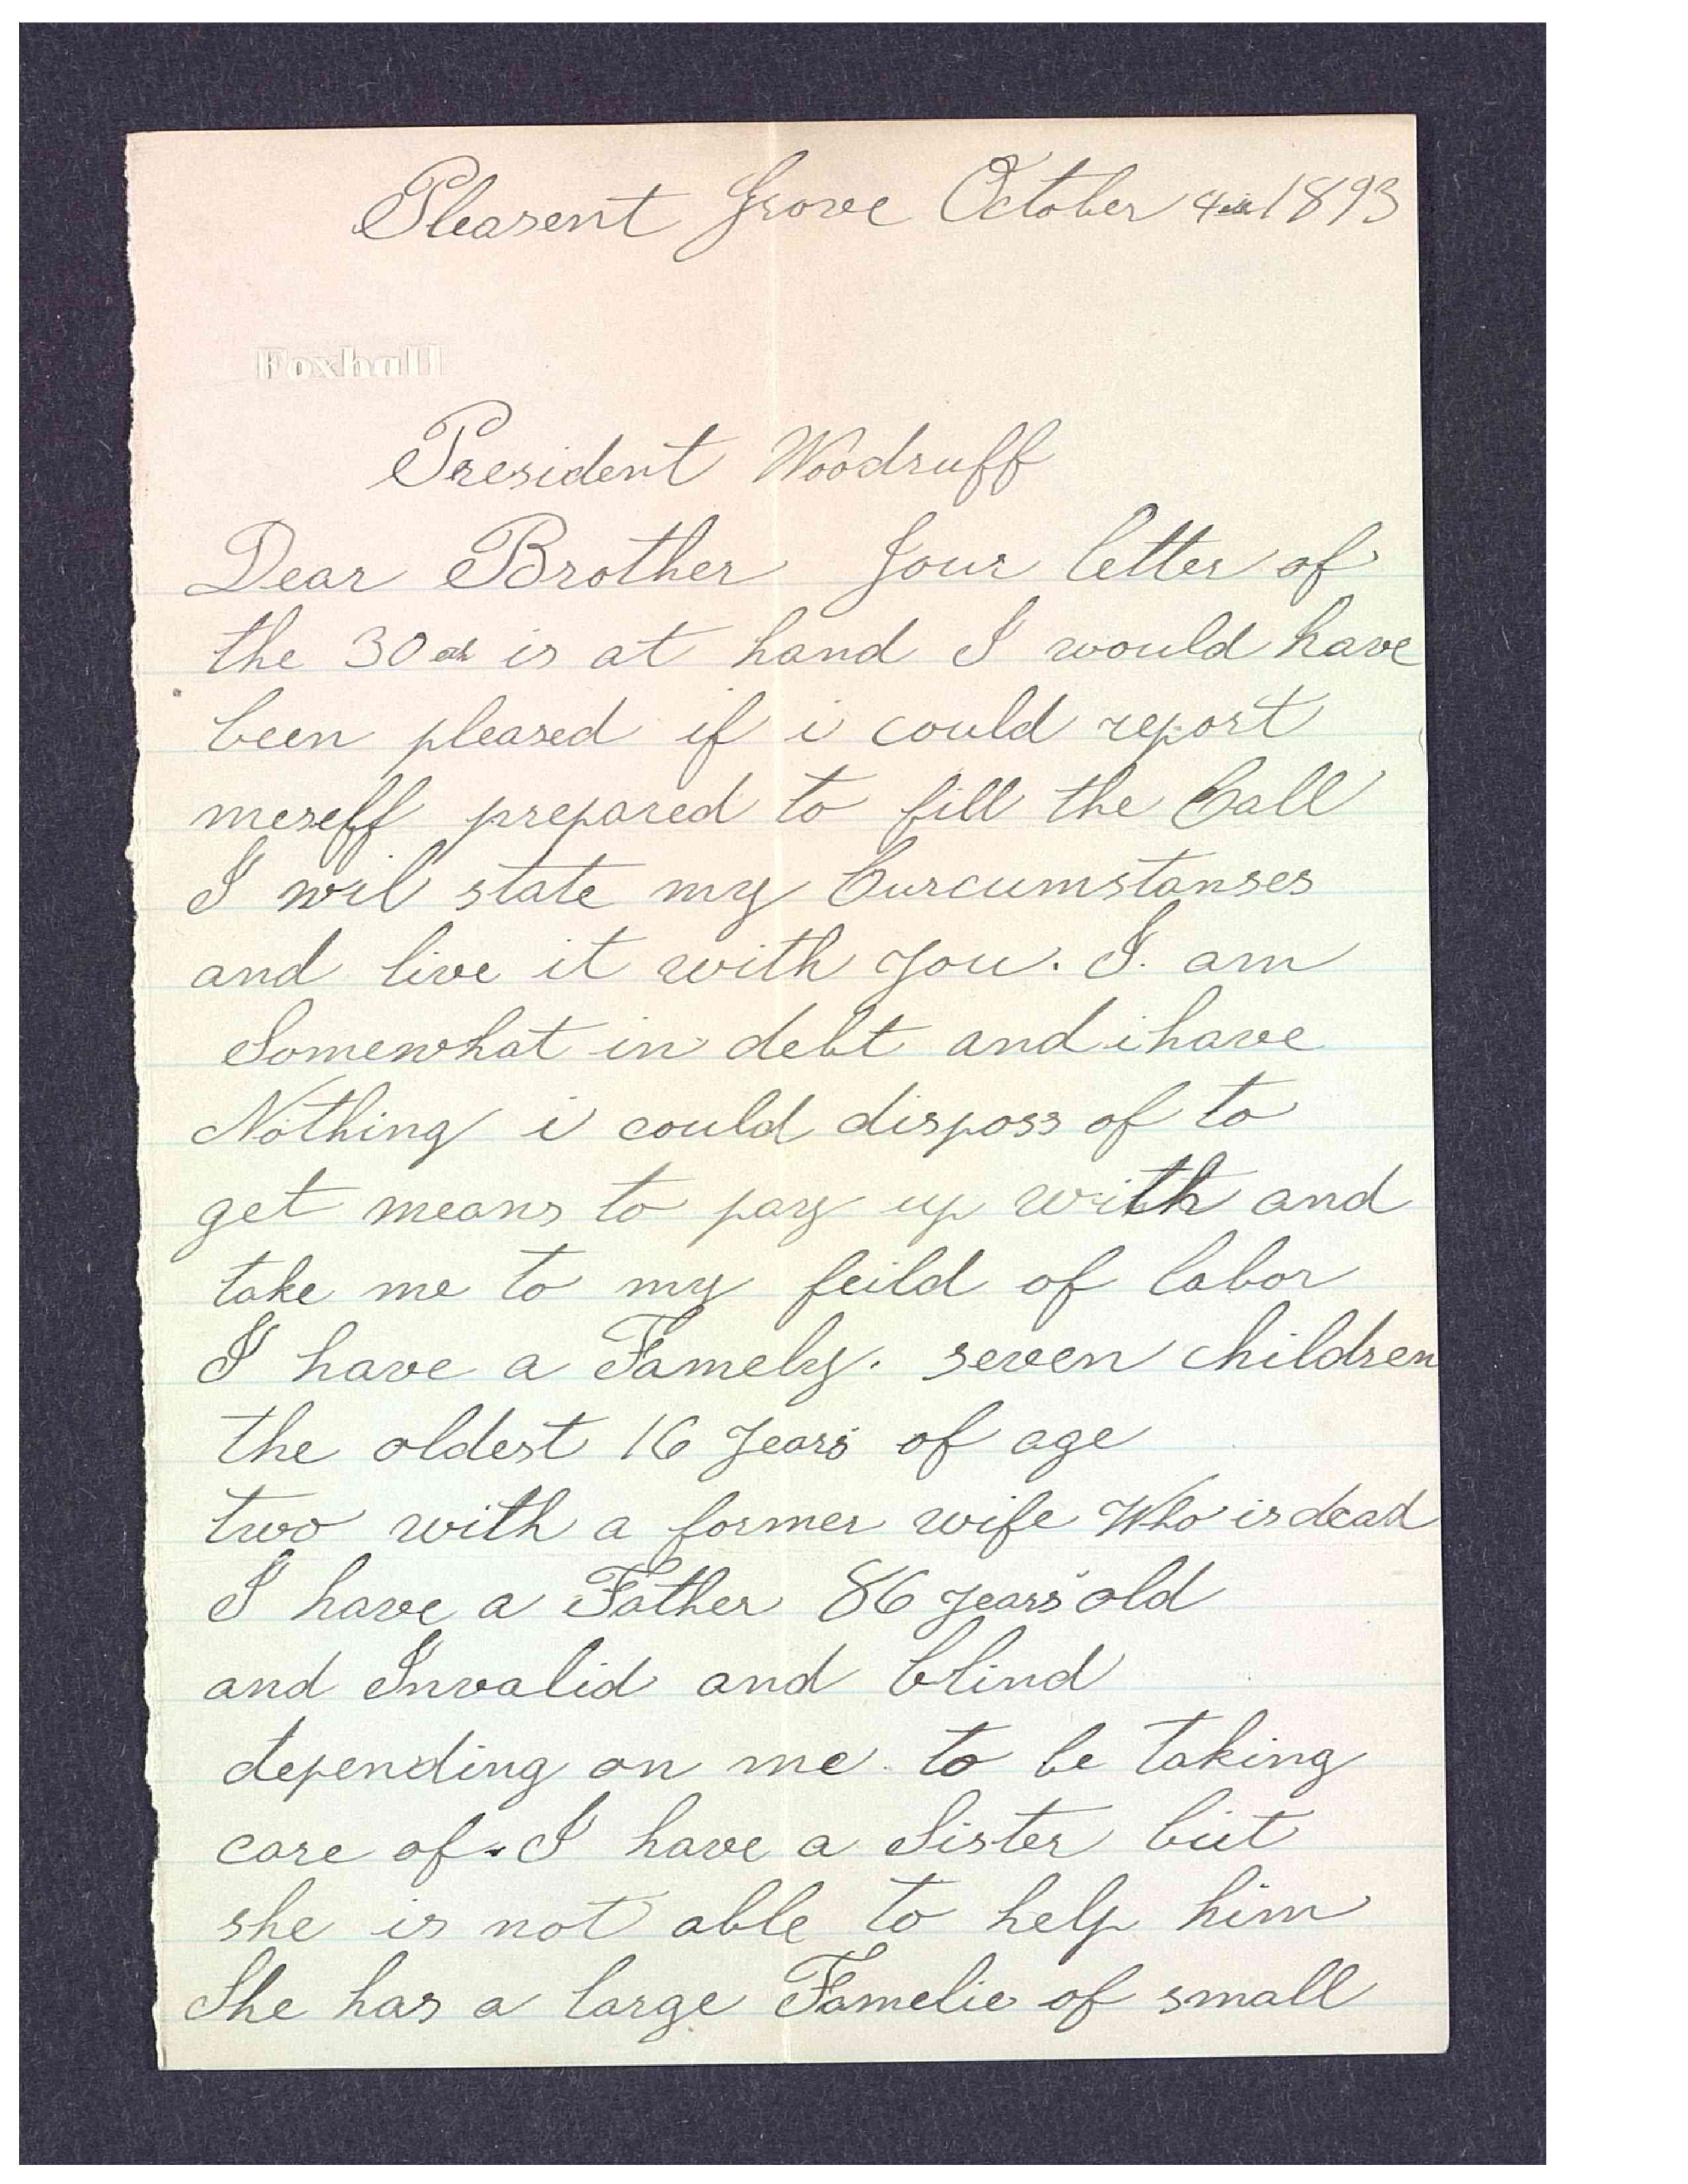 Pleasent Grove October 4th 1893
Foxhall
President Woodruff
Dear Brother Your letter of
the 30th is at hand I would have
been pleased if i could report
meseff prepared to fill the Call
I wil state my Curcumstanses
and live it with you. I. am
Somewhat in debt and i have
Nothing i could disposs of to
get means to pay up with and
take me to my feild of labor
I have a Famely. seven children
the oldest 16 years of age
two with a former wife Who is dead
I have a Father 86 years old
and Invalid and blind
depending on me to be taking
care of. I have a Sister but
she is not able to help him
She has a large Famelie of small